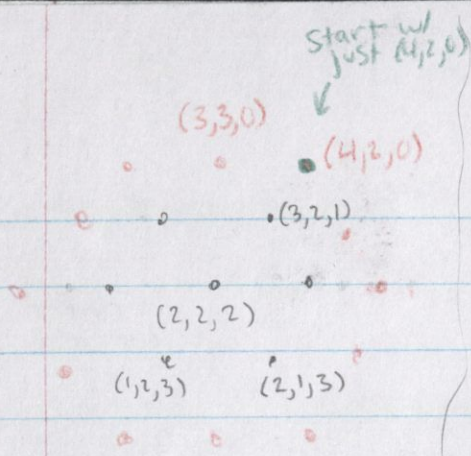 start w/
just (4,2,0)
(3,3,0)
(4,2,0)
(3,2,1)
(2,2,2)
(1,2,3) (2,1,3)